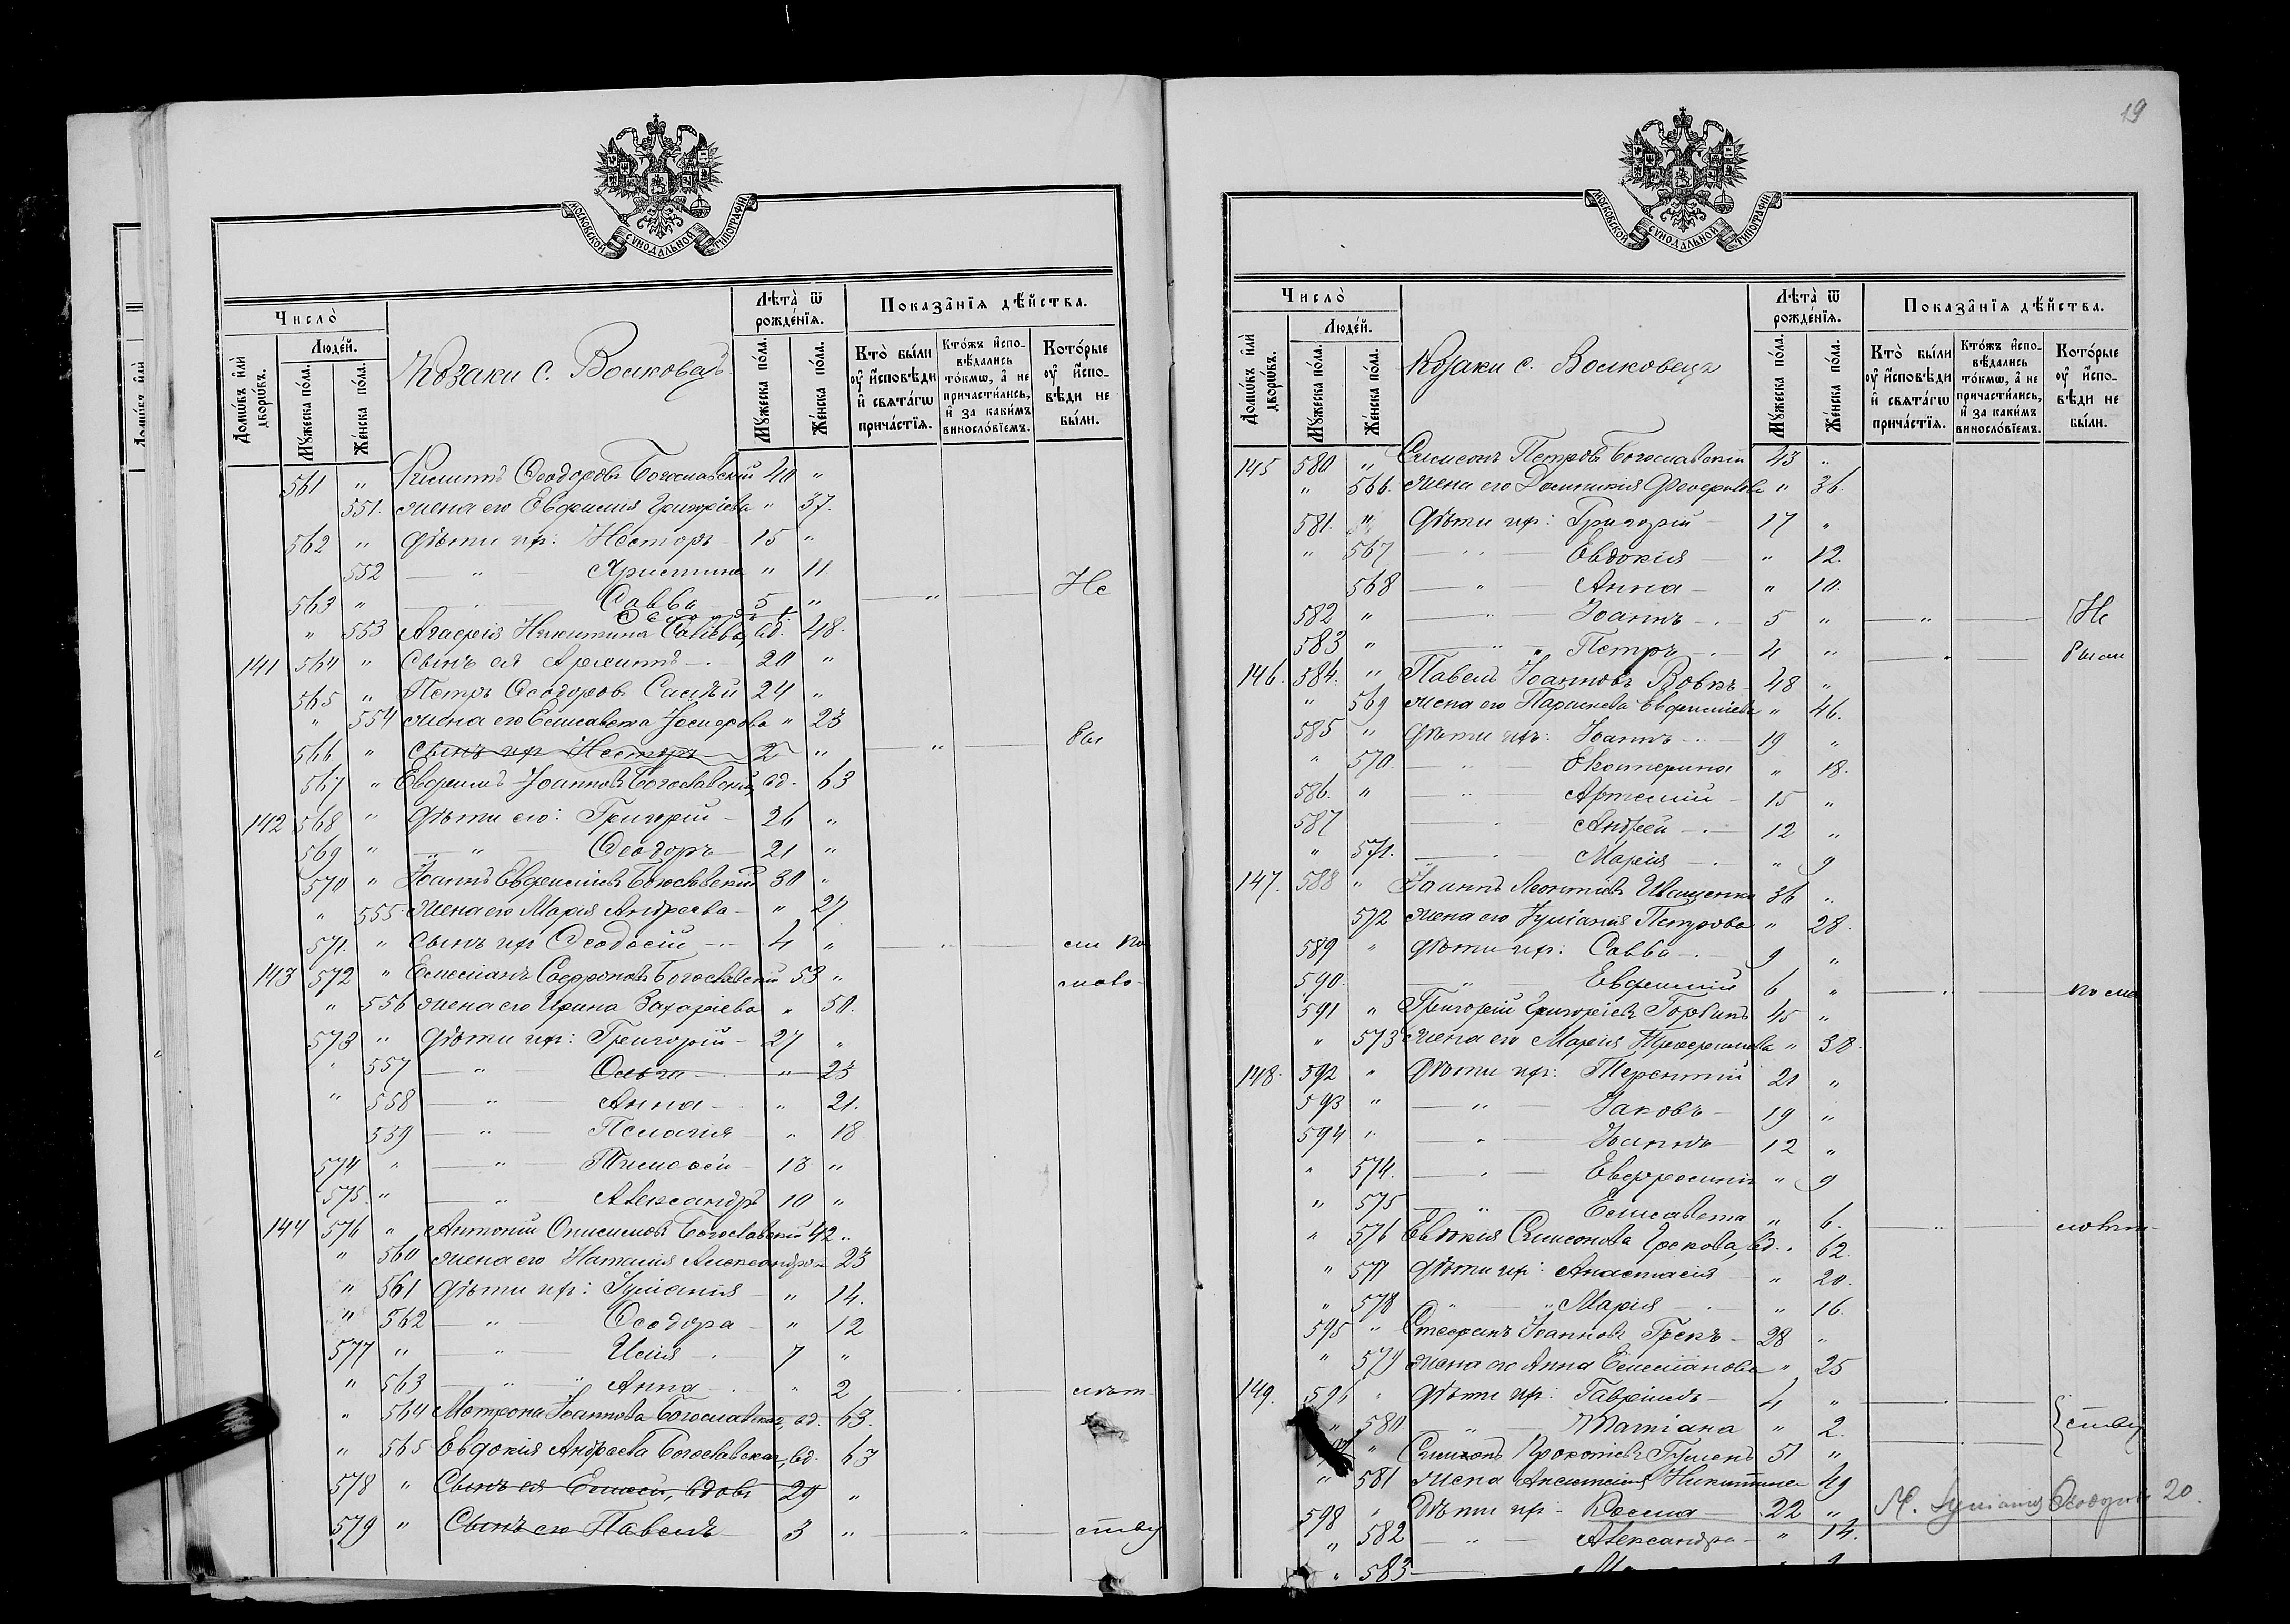 МОСКОВСКОЙ СУНОДАЛЬНОЙ ТИПОГРАФІИ
Число̀
Домѡ́въ и҆лѝ дворѡ́въ.
Люде́й.
Мꙋ́жеска по́ла.
Же́нска по́ла.
Козаки с.
Лѣта̀ ѿ рожде́нїѧ.
Мꙋ́жеска по́ла.
Же́нска по́ла.
Показа̑нїѧ дѣ́йства.
Кто̀ бы́ли оу҆ и҆сповѣди и҆ свѧта́гѡ прича́стїѧ.
Кто́жъ и҆спо-вѣдались то́кмѡ, а҆ не причасти́лись, и҆ за каки́мъ винословїемъ.
Кото́рые оу҆ и҆спо-вѣди не бы́ли.
561 " Филиппъ Ѳеодоровъ Богославскій 40 "
551. жена его Евфимія Григоріева " 37.
562 " дѣти ихъ: Несторъ 15 "
552 — " — Христина " 11
563 " — Савва 5 " — " — Не
" 553 Агафія Никитина вд. 48.
141 564 " Сынъ ея 20 "
565 " Петръ Ѳеодоровъ 24 "
" 554 жена его Елисавета " 23
566 " Сынъ ихъ Несторъ 2 " " бы
567 " Евфимъ Іоанновъ Богославскій, вд. 63
142 568 " дѣти его: Григорій 26 "
569 " — " — Ѳеодоръ 21 "
570 " Іоаннъ Евфиміевъ Богославскій 30 "
" 555. жена его Марія Андреева " 27
571. " сынъ ихъ Ѳеодосій 4 " — " — ли по
143 572 " Емеліанъ Софроновъ Богославскій 53 " мало-
" 556 жена его Ирина Захаріева " 50.
573 " дѣти ихъ: Григорій 27 "
" 557 — " — Ольга " 23
" 558 — " — Анна " 21.
559 — " — Пелагія " 18
574 " — " — Тимоѳей 13 "
575. " — " — Александръ 10 "
144 576 " Антоній Онисимовъ Богославскій 42 "
" 560 жена его Наталія Александрова 23
" 561 дѣти ихъ: Іуліанія " 14.
" 562 — " — Ѳеодора " 12
577 " — " — Илія 7 "
" 563 — " — Анна " 2 — лѣт-
" 564 Мотрона Іоаннова Богославская, вд. 63.
" 565 Евдокія Андреева Богославская, вд. 63
578 " Сынъ ея вдовъ 29 "
579 " Сынъ его Павелъ 3 " — " — ству
19
МОСКОВСКОЙ СУНОДАЛЬНОЙ ТИПОГРАФІИ
Число̀
Домѡ́въ и҆лѝ дворѡ́въ.
Люде́й.
Мꙋ́жеска по́ла.
Же́нска по́ла.
Козаки с. Волковецъ
Лѣта̀ ѿ рожде́нїѧ.
Мꙋ́жеска по́ла.
Же́нска по́ла.
Показа̑нїѧ дѣ́йства.
Кто̀ бы́ли оу҆ и҆сповѣди и҆ свѧта́гѡ прича́стїѧ.
Кто́жъ и҆спо-вѣдались то́кмѡ, а҆ не причасти́лись, и҆ за каки́мъ винословїемъ.
Кото́рые оу҆ и҆спо-вѣди не бы́ли.
145 580 " Симеонъ Петровъ Богославскій 43 "
" 566. жена его Домникія " 36.
581. " дѣти ихъ: Григорій 17 "
" 567 — " — Евдокія " 12.
568 — " — Анна " 10.
582 " — " — Іоаннъ 5 " — " — Не
583 " — " — Петръ 4 " — " — были
146. 584. " Павелъ Іоанновъ Вовкъ 48 "
" 569 жена его Параскева Евфиміева " 46.
585 " дѣти ихъ: Іоаннъ 19 "
" 570. — " — Екатерина " 18.
586. " — " — Артемій 15 "
587 — " — Андрей 12 "
" 571. — " — Марія " 9
147. 588 " Іоаннъ Леонтіевъ Иващенко 36 "
572 жена его Іуліанія Петрова " 28.
589 " дѣти ихъ: Савва 9 "
590. — " — Евфимій 6 " — " — по мал
591 " Григорій Григоріевъ 45 "
" 573 жена его Марія Трофимова " 38.
148. 592 " дѣти ихъ: Терентій 21 "
593 " — " — Іаковъ 19 "
594 " — " — Іоаннъ 12 "
" 574. — " — Евфросинія " 9
" 575 — " — Елисавета " 6. — " — олѣт-
" 576 Евдокія Симеонова Грекова, вд. " 62.
" 577 дѣти ихъ: Анастасія " 20.
" 578 " — " Марія " 16.
595 " Стефанъ Іоанновъ Грекъ 28 "
" 579 жена его Анна Емеліанова " 25
149. 596 " дѣти ихъ: Гавріилъ 4 "
" 580 — " — Татіана " 2. ству
" Симеонъ Прокопіевъ 51 "
" 581 жена Никитина 49
598 " дѣти ихъ - 22 " Ж. Іуліанія Ѳеодоров 20.
" 582 — " — Александра " 14.
" 583